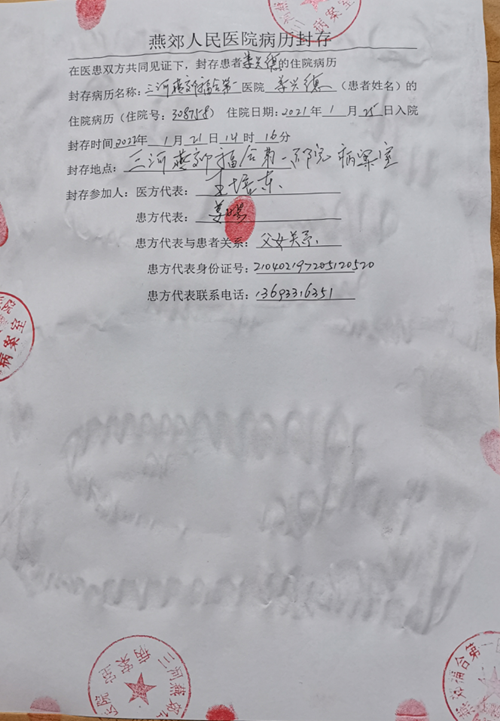 燕郊人民医院病历封存
在医患双方共同见证下，封存患者姜兴德的住院病历
封存病历名称：三河燕郊福合第一医院 姜兴德（患者姓名）的
住院病历（住院号：308758） 住院日期：2021年1月25日入院
封存时间2022年1月21日14时16分
封存地点：三河燕郊福合第一医院病案室
封存参加人：医方代表：王培东
患方代表：姜
患方代表与患者关系：父女关系
患方代表身份证号：210402197205120520
患方代表联系电话：13693316351
病案室
病案室
三河燕郊